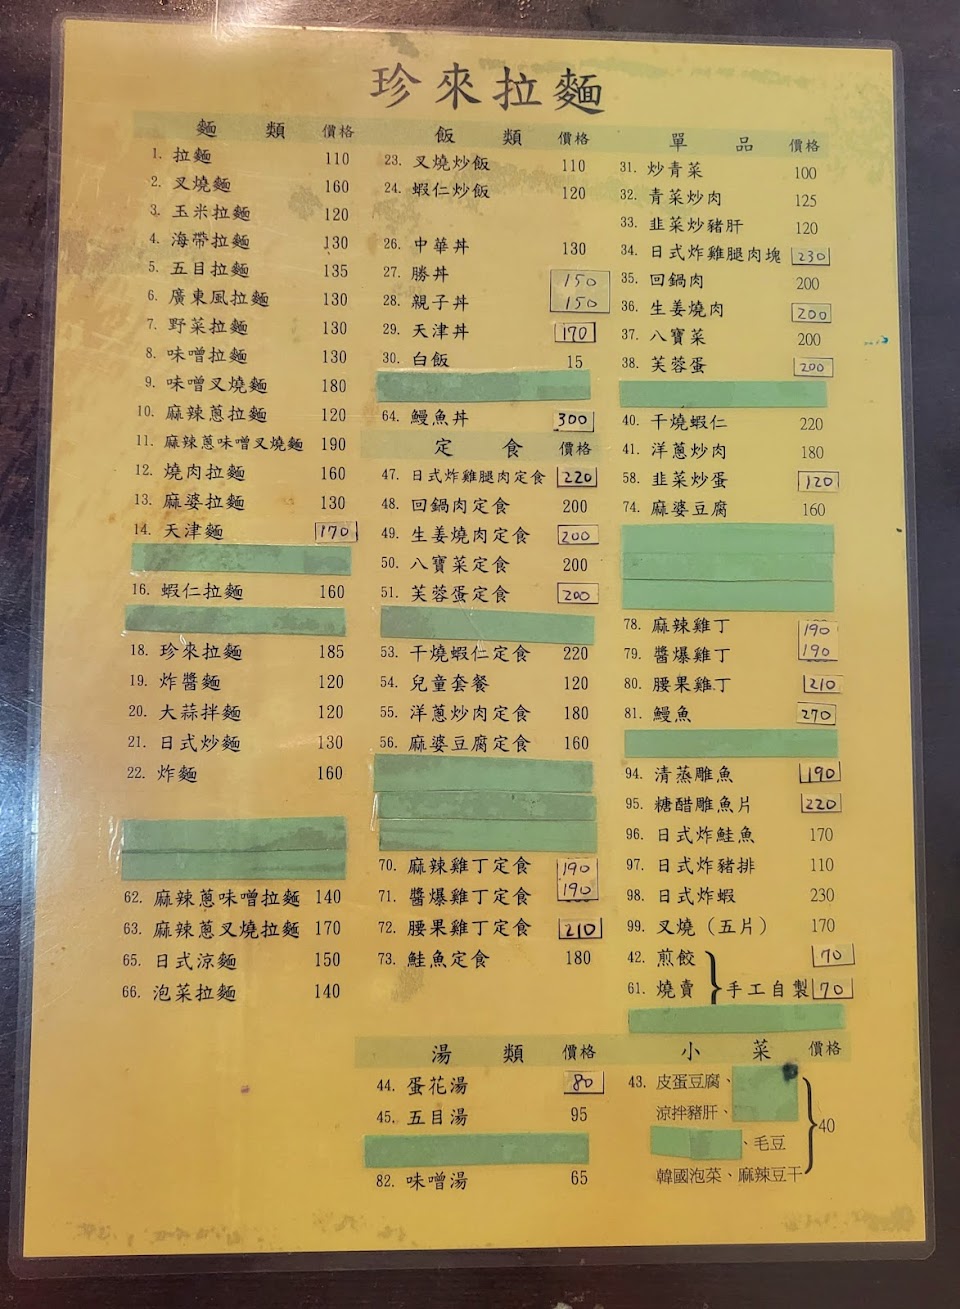 珍來拉麵
麵類 價格
1. 拉麵 110
2. 叉燒麵 160
3. 玉米拉麵 120
4. 海帶拉麵 130
5. 五目拉麵 135
6. 廣東風拉麵 130
7. 野菜拉麵 130
8. 味噌拉麵 130
9. 味噌叉燒麵 180
10. 麻辣蔥拉麵 120
11. 麻辣蔥味噌叉燒麵 190
12. 燒肉拉麵 160
13. 麻婆拉麵 130
14. 天津麵 170
16. 蝦仁拉麵 160
18. 珍來拉麵 185
19. 炸醬麵 120
20. 大蒜拌麵 120
21. 日式炒麵 130
22. 炸麵 160
62. 麻辣蔥味噌拉麵 140
63. 麻辣蔥叉燒拉麵 170
65. 日式涼麵 150
66. 泡菜拉麵 140
飯類 價格
23. 叉燒炒飯 110
24. 蝦仁炒飯 120
26. 中華丼 130
27. 勝丼 150
28. 親子丼 150
29. 天津丼 170
30. 白飯 15
64. 鰻魚丼 300
定食 價格
47. 日式炸雞腿肉定食 220
48. 回鍋肉定食 200
49. 生姜燒肉定食 200
50. 八寶菜定食 200
51. 芙蓉蛋定食 200
53. 干燒蝦仁定食 220
54. 兒童套餐 120
55. 洋蔥炒肉定食 180
56. 麻婆豆腐定食 160
70. 麻辣雞丁定食 190
71. 醬爆雞丁定食 190
72. 腰果雞丁定食 210
73. 鮭魚定食 180
湯類 價格
44. 蛋花湯 80
45. 五目湯 95
82. 味噌湯 65
單品 價格
31. 炒青菜 100
32. 青菜炒肉 125
33. 韭菜炒豬肝 120
34. 日式炸雞腿肉塊 230
35. 回鍋肉 200
36. 生姜燒肉 200
37. 八寶菜 200
38. 芙蓉蛋 200
40. 干燒蝦仁 220
41. 洋蔥炒肉 180
58. 韭菜炒蛋 120
74. 麻婆豆腐 160
78. 麻辣雞丁 190
79. 醬爆雞丁 190
80. 腰果雞丁 210
81. 鰻魚 270
94. 清蒸雕魚 190
95. 糖醋雕魚片 220
96. 日式炸鮭魚 170
97. 日式炸豬排 110
98. 日式炸蝦 230
99. 叉燒（五片） 170
42. 煎餃 70
61. 燒賣 手工自製 70
小菜 價格
43. 皮蛋豆腐、
涼拌豬肝、
、毛豆 40
韓國泡菜、麻辣豆干